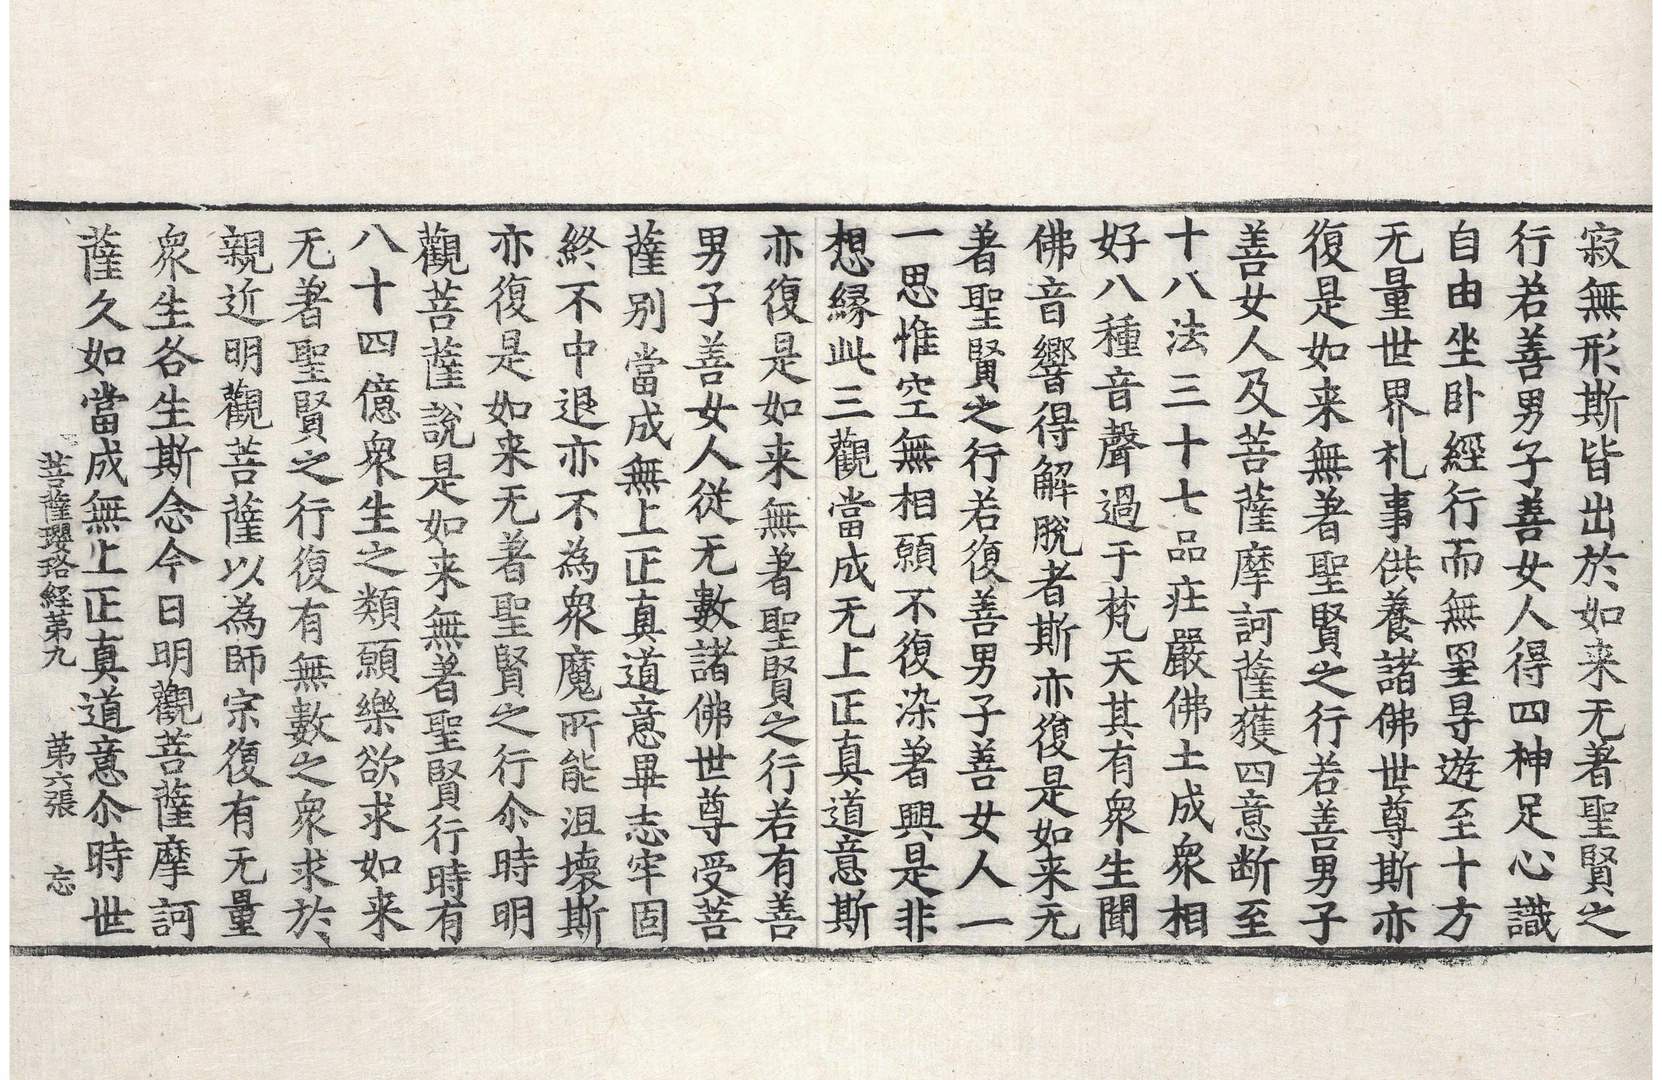 寂無形斯皆出於如来无著聖賢之
行若善男子善女人得四神足心識
自由坐卧經行而無罣㝵遊至十方
无量世界礼事供養諸佛世尊斯亦
復是如来無著聖賢之行若善男子
善女人及菩薩摩訶薩獲四意断至
十八法三十七品莊嚴佛土成衆相
好八種音聲過于梵天其有衆生聞
佛音響得解脫者斯亦復是如来无
著聖賢之行若復善男子善女人一
一思惟空無相願不復染著興是非
想縁此三觀當成无上正真道意斯
亦復是如来無著聖賢之行若有善
男子善女人從无數諸佛世尊受菩
薩别當成無上正真道意畢志牢固
終不中退亦不為衆魔所能沮壞斯
亦復是如来无著聖賢之行尒時明
觀菩薩說是如来無著聖賢行時有
八十四億衆生之類願樂欲求如来
无著聖賢之行復有無數之衆求於
親近明觀菩薩以為師宗復有无量
衆生各生斯念今日明觀菩薩摩訶
薩久如當成無上正真道意尒時世
菩薩瓔珞経第九 第六張 忘